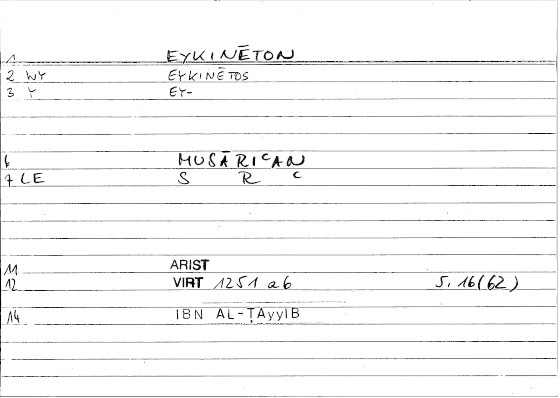 1 EYKINĒTON
2 WY EYKINĒTOS
3 Y EY-
6 MUSĀRIᶜAN
7 LE S R ᶜ
11 ARIST
12 VIRT 1251 a6 5, 16(62)
14 IBN AL-ṬAyyIB